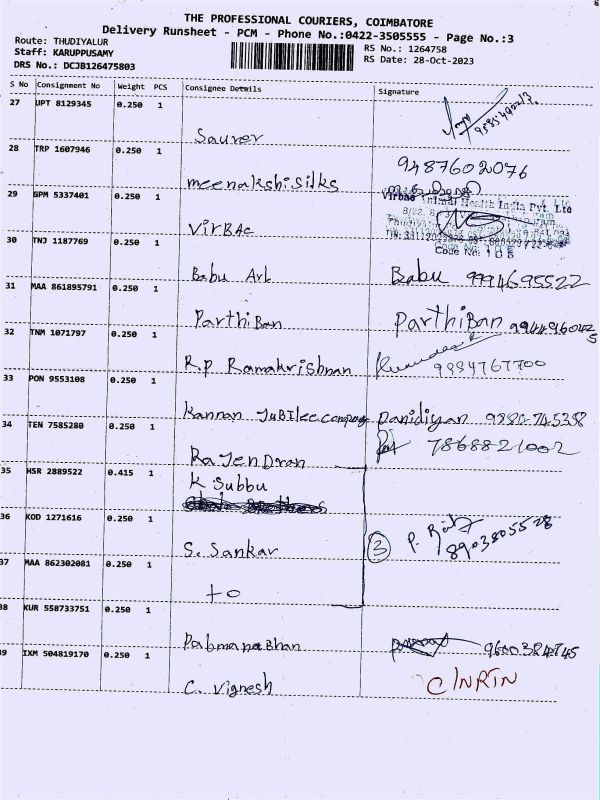 THE PROFESSIONAL COURIERS, COIMBATORE
Delivery Runsheet - PCM - Phone No.:0422-3505555 - Page No.:3
Route: THUDIYALUR
Staff: KARUPPUSAMY
DRS No.: DCJB126475803
RS No.: 1264758
RS Date: 28-Oct-2023
S No Consignment No Weight PCS Consignee Details Signature
27 UPT 8129345 0.250 1
Saurer
28 TRP 1607946 0.250 1
meenakshi silks 9487602076
29 GPM 5337401 0.250 1
VirBAC Virbac Animal Health India Pvt. Ltd
Code No: 105
30 TNJ 1187769 0.250 1
Babu Art Babu 9994695522
31 MAA 861895791 0.250 1
ParthiBan ParthiBan
32 TNM 1071797 0.250 1
R.p Ramakrishnan 9884767700
33 PON 9553108 0.250 1
Kannan JuBIlee company Panidiyan
34 TEN 7585280 0.250 1
RaJenDran 7868821002
35 HSR 2889522 0.415 1
K Subbu
36 KOD 1271616 0.250 1
S. Sankar 3 8903805528
37 MAA 862302081 0.250 1
to
38 KUR 558733751 0.250 1
Pabmanabhan
39 IXM 504819170 0.250 1
C. Vignesh C/NRTN